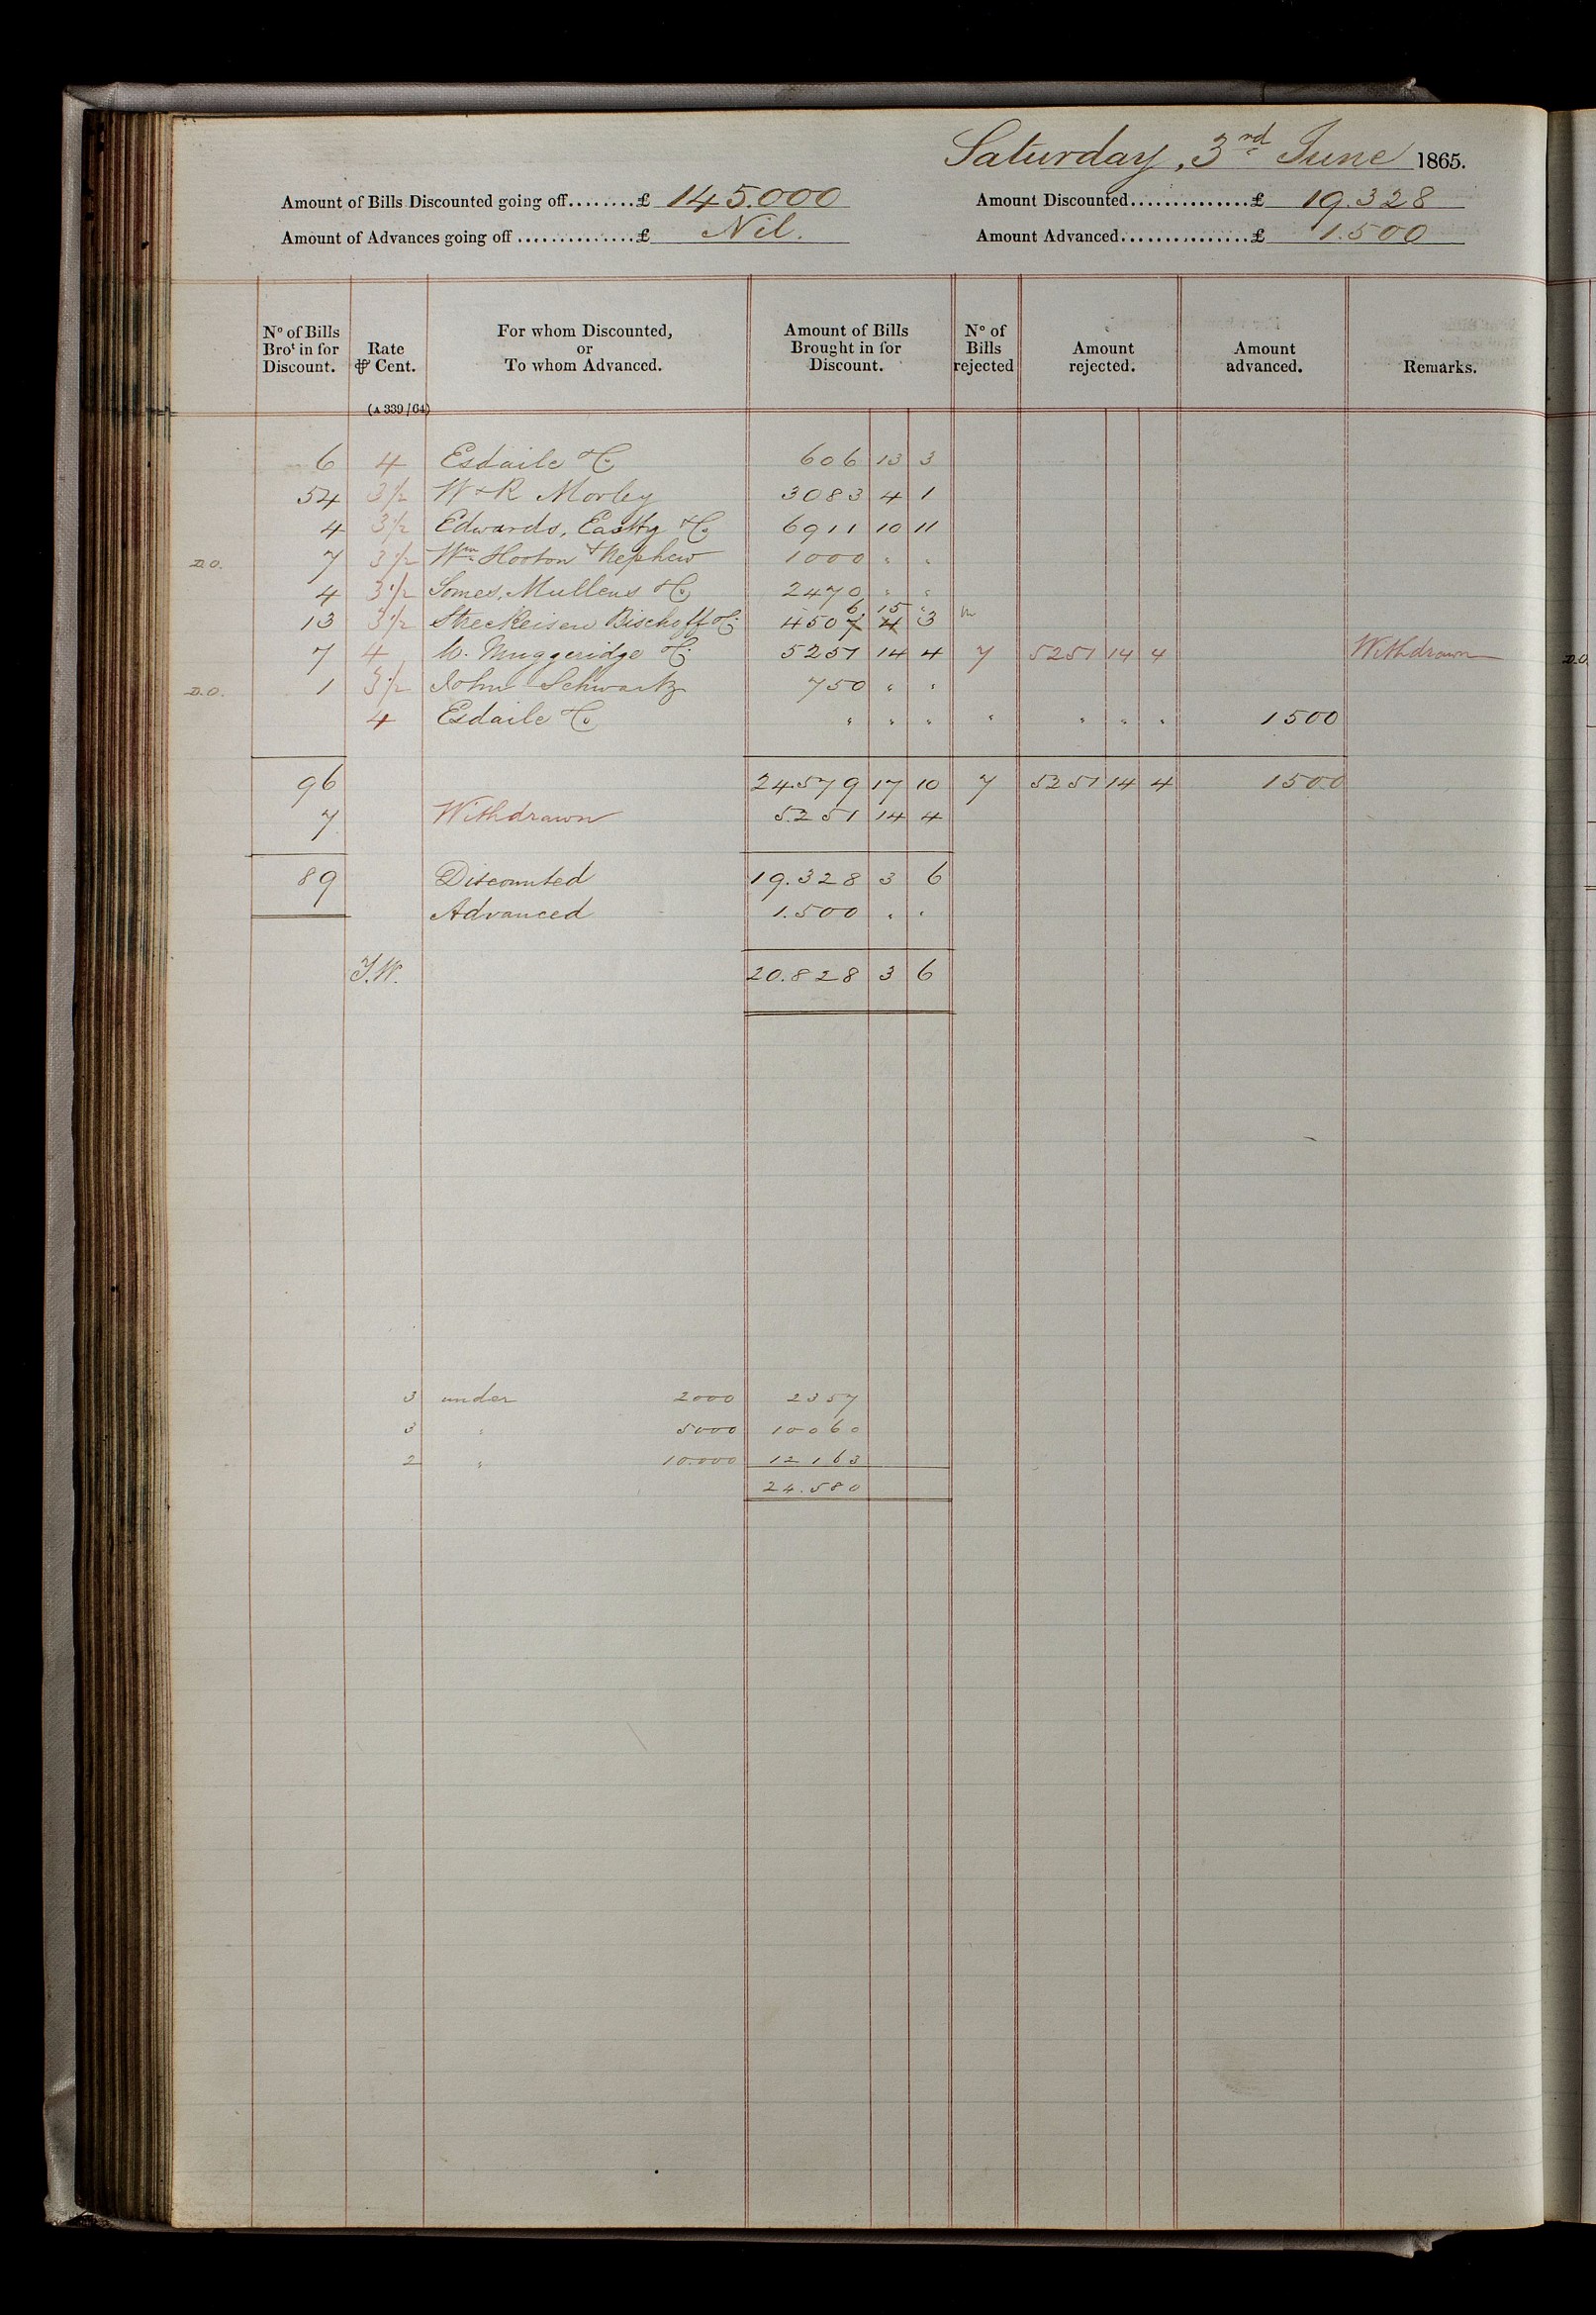 Saturday, 3rd June 1865.
Amount of Bills Discounted going off........£ 145.000 Amount Discounted..............£ 19.328
Amount of Advances going off ...............£ Nil. Amount Advanced...............£ 1.500
No of Bills Brot in for Discount. Rate ⅌ Cent. (A 339/64) For whom Discounted, or To whom Advanced. Amount of Bills Brought in for Discount. No of Bills rejected Amount rejected. Amount advanced. Remarks.
6 4 Esdaile & Co 606 13 3
54 3½ W & R Morley 3083 4 1
4 3½ Edwards, Eastty & Co 6911 10 11
D.O. 7 3½ Wm Hooton & Nephew 1000 " "
4 3½ Somes, Mullens & Co 2470 " "
6 15 "
13 3½ Streckeisen Bischoff & Co 4507 4 3
7 4 W. Muggeridge & Co 5251 14 4 7 5251 14 4 Withdrawn
D.O. 1 3½ John Schwartz 750 " "
4 Esdaile & Co " " " " " " " 1500
96 24.579 17 10 7 5251 14 4 1500
7 Withdrawn 5.251 14 4
89 Discounted 19.328 3 6
Advanced 1.500 " "
J.W. 20.828 3 6
3 under 2000 2357
3 " 5000 10060
2 " 10.000 12163
24.580
D.O.